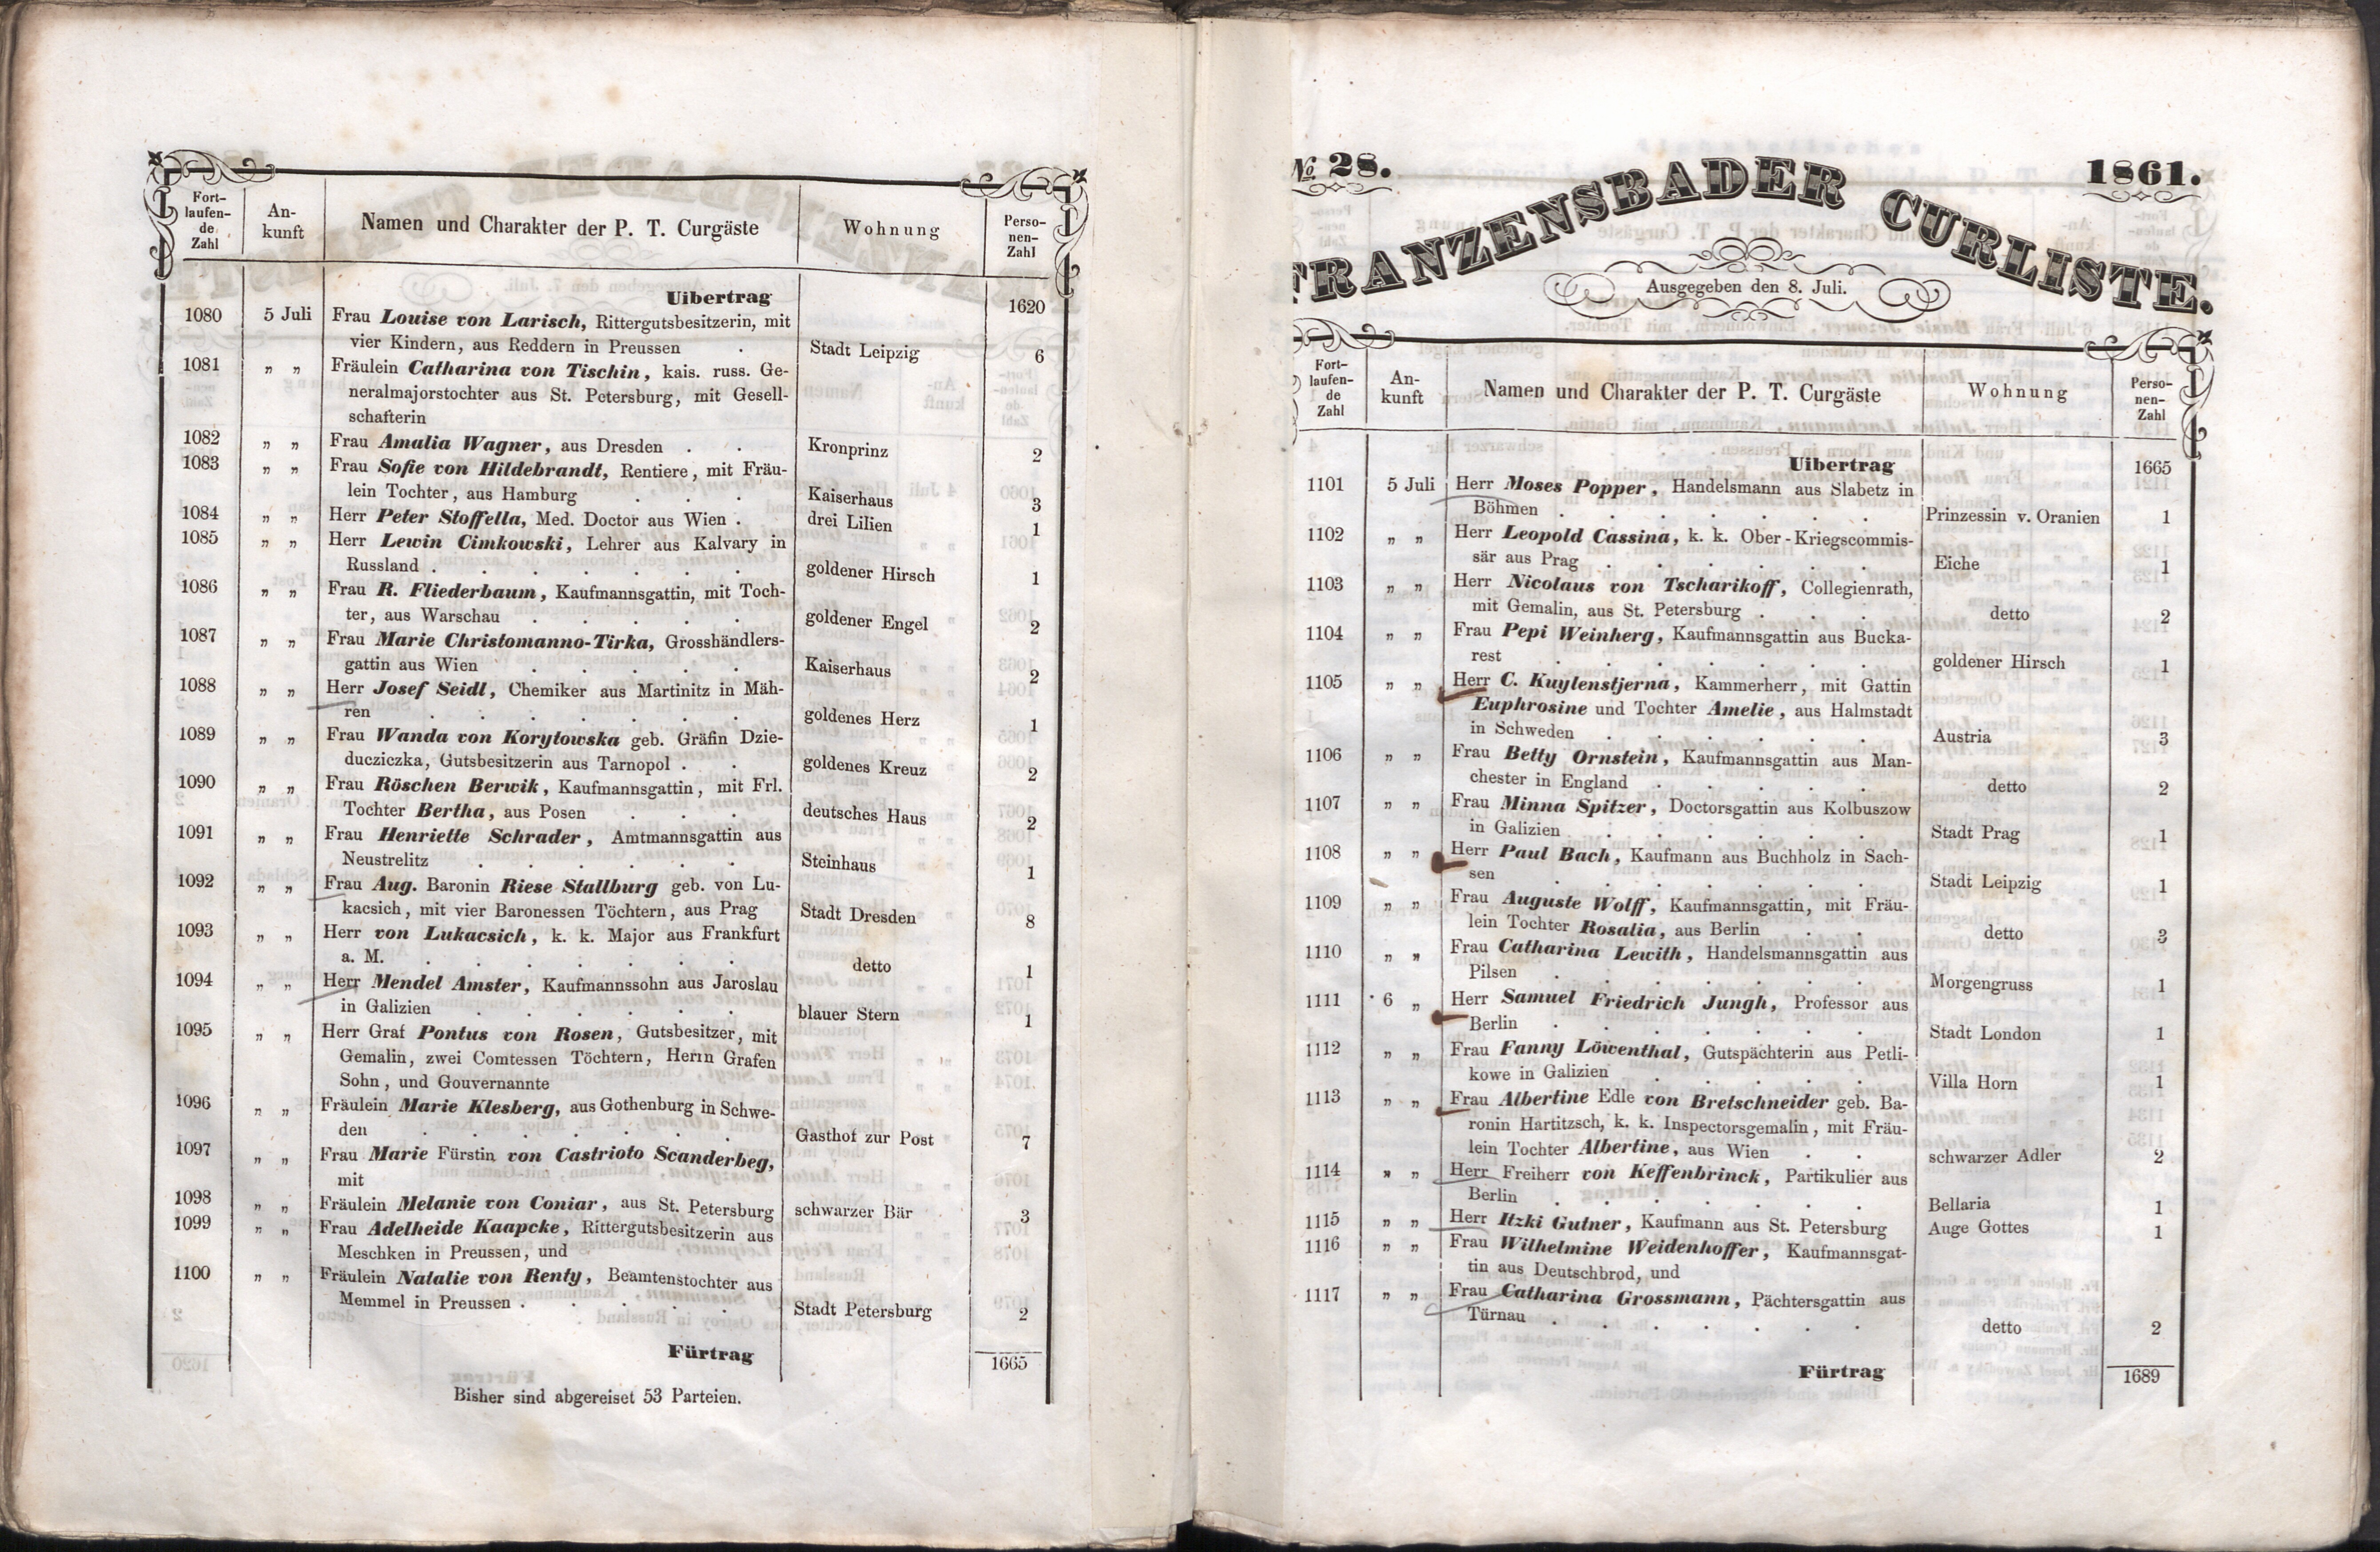 Fort-
laufen-
de
Zahl
An-
kunft
Namen und Charakter der P. T. Curgäste
Wohnung
Perso-
nen-
Zahl
Uibertrag 1620
1080 5 Juli Frau Louise von Larisch, Rittergutsbesitzerin, mit
vier Kindern, aus Reddern in Preussen . Stadt Leipzig 6
1081 „ „ Fräulein Catharina von Tischin, kais. russ. Ge-
neralmajorstochter aus St. Petersburg, mit Gesell-
schafterin Kronprinz 2
1082 „ „ Frau Amalia Wagner, aus Dresden . .
1083 „ „ Frau Sofie von Hildebrandt, Rentiere, mit Fräu-
lein Tochter, aus Hamburg . . . Kaiserhaus 3
1084 „ „ Herr Peter Stoffella, Med. Doctor aus Wien . drei Lilien 1
1085 „ „ Herr Lewin Cimkowski, Lehrer aus Kalvary in
Russland . . . . . . . goldener Hirsch 1
1086 „ „ Frau R. Fliederbaum, Kaufmannsgattin, mit Toch-
ter, aus Warschau . . . . . goldener Engel 2
1087 „ „ Frau Marie Christomanno-Tirka, Grosshändlers-
gattin aus Wien . . . . . Kaiserhaus 2
1088 „ „ Herr Josef Seidl, Chemiker aus Martinitz in Mäh-
ren . . . . . . . goldenes Herz 1
1089 „ „ Frau Wanda von Korytowska geb. Gräfin Dzie-
ducziczka, Gutsbesitzerin aus Tarnopol . . goldenes Kreuz 2
1090 „ „ Frau Röschen Berwik, Kaufmannsgattin, mit Frl.
Tochter Bertha, aus Posen . . . deutsches Haus 2
1091 „ „ Frau Henriette Schrader, Amtmannsgattin aus
Neustrelitz . . . . . . Steinhaus 1
1092 „ „ Frau Aug. Baronin Riese Stallburg geb. von Lu-
kacsich, mit vier Baronessen Töchtern, aus Prag Stadt Dresden 8
1093 „ „ Herr von Lukacsich, k. k. Major aus Frankfurt
a. M. . . . . . . . detto 1
1094 „ „ Herr Mendel Amster, Kaufmannssohn aus Jaroslau
in Galizien . . . . . . blauer Stern 1
1095 „ „ Herr Graf Pontus von Rosen, Gutsbesitzer, mit
Gemalin, zwei Comtessen Töchtern, Herrn Grafen
Sohn, und Gouvernannte
1096 „ „ Fräulein Marie Klesberg, aus Gothenburg in Schwe-
den . . . . . . . Gasthof zur Post 7
1097 „ „ Frau Marie Fürstin von Castrioto Scanderbeg,
mit
1098 „ „ Fräulein Melanie von Coniar, aus St. Petersburg schwarzer Bär 3
1099 „ „ Frau Adelheide Kaapcke, Rittergutsbesitzerin aus
Meschken in Preussen, und
1100 „ „ Fräulein Natalie von Renty, Beamtenstochter aus
Memmel in Preussen . . . . . Stadt Petersburg 2
Fürtrag 1665
Bisher sind abgereiset 53 Parteien.
№ 28. 1861.
FRANZENSBADER CURLISTE.
Ausgegeben den 8. Juli.
Fort-
laufen-
de
Zahl
An-
kunft
Namen und Charakter der P. T. Curgäste
Wohnung
Perso-
nen-
Zahl
Uibertrag 1665
1101 5 Juli Herr Moses Popper, Handelsmann aus Slabetz in
Böhmen . . . . . . . Prinzessin v. Oranien 1
1102 „ „ Herr Leopold Cassina, k. k. Ober-Kriegscommis-
sär aus Prag . . . . . . Eiche 1
1103 „ „ Herr Nicolaus von Tscharikoff, Collegienrath,
mit Gemalin, aus St. Petersburg . . . detto 2
1104 „ „ Frau Pepi Weinberg, Kaufmannsgattin aus Bucka-
rest . . . . . . . goldener Hirsch 1
1105 „ „ Herr C. Kuylenstjerna, Kammerherr, mit Gattin
Euphrosine und Tochter Amelie, aus Halmstadt
in Schweden . . . . . . Austria 3
1106 „ „ Frau Betty Ornstein, Kaufmannsgattin aus Man-
chester in England . . . . . detto 2
1107 „ „ Frau Minna Spitzer, Doctorsgattin aus Kolbuszow
in Galizien . . . . . . Stadt Prag 1
1108 „ „ Herr Paul Bach, Kaufmann aus Buchholz in Sach-
sen . . . . . . . Stadt Leipzig 1
1109 „ „ Frau Auguste Wolff, Kaufmannsgattin, mit Fräu-
lein Tochter Rosalia, aus Berlin . . detto 3
1110 „ „ Frau Catharina Lewith, Handelsmannsgattin aus
Pilsen . . . . . . . Morgengruss 1
1111 6 „ Herr Samuel Friedrich Jungh, Professor aus
Berlin . . . . . . . Stadt London 1
1112 „ „ Frau Fanny Löwenthal, Gutspächterin aus Petli-
kowe in Galizien . . . . . Villa Horn 1
1113 „ „ Frau Albertine Edle von Bretschneider geb. Ba-
ronin Hartitzsch, k. k. Inspectorsgemalin, mit Fräu-
lein Tochter Albertine, aus Wien . . schwarzer Adler 2
1114 „ „ Herr Freiherr von Keffenbrinck, Partikulier aus
Berlin . . . . . . . Bellaria 1
1115 „ „ Herr Itzki Gutner, Kaufmann aus St. Petersburg Auge Gottes 1
1116 „ „ Frau Wilhelmine Weidenhoffer, Kaufmannsgat-
tin aus Deutschbrod, und
1117 „ „ Frau Catharina Grossmann, Pächtersgattin aus
Türnau . . . . . . . detto 2
Fürtrag 1689